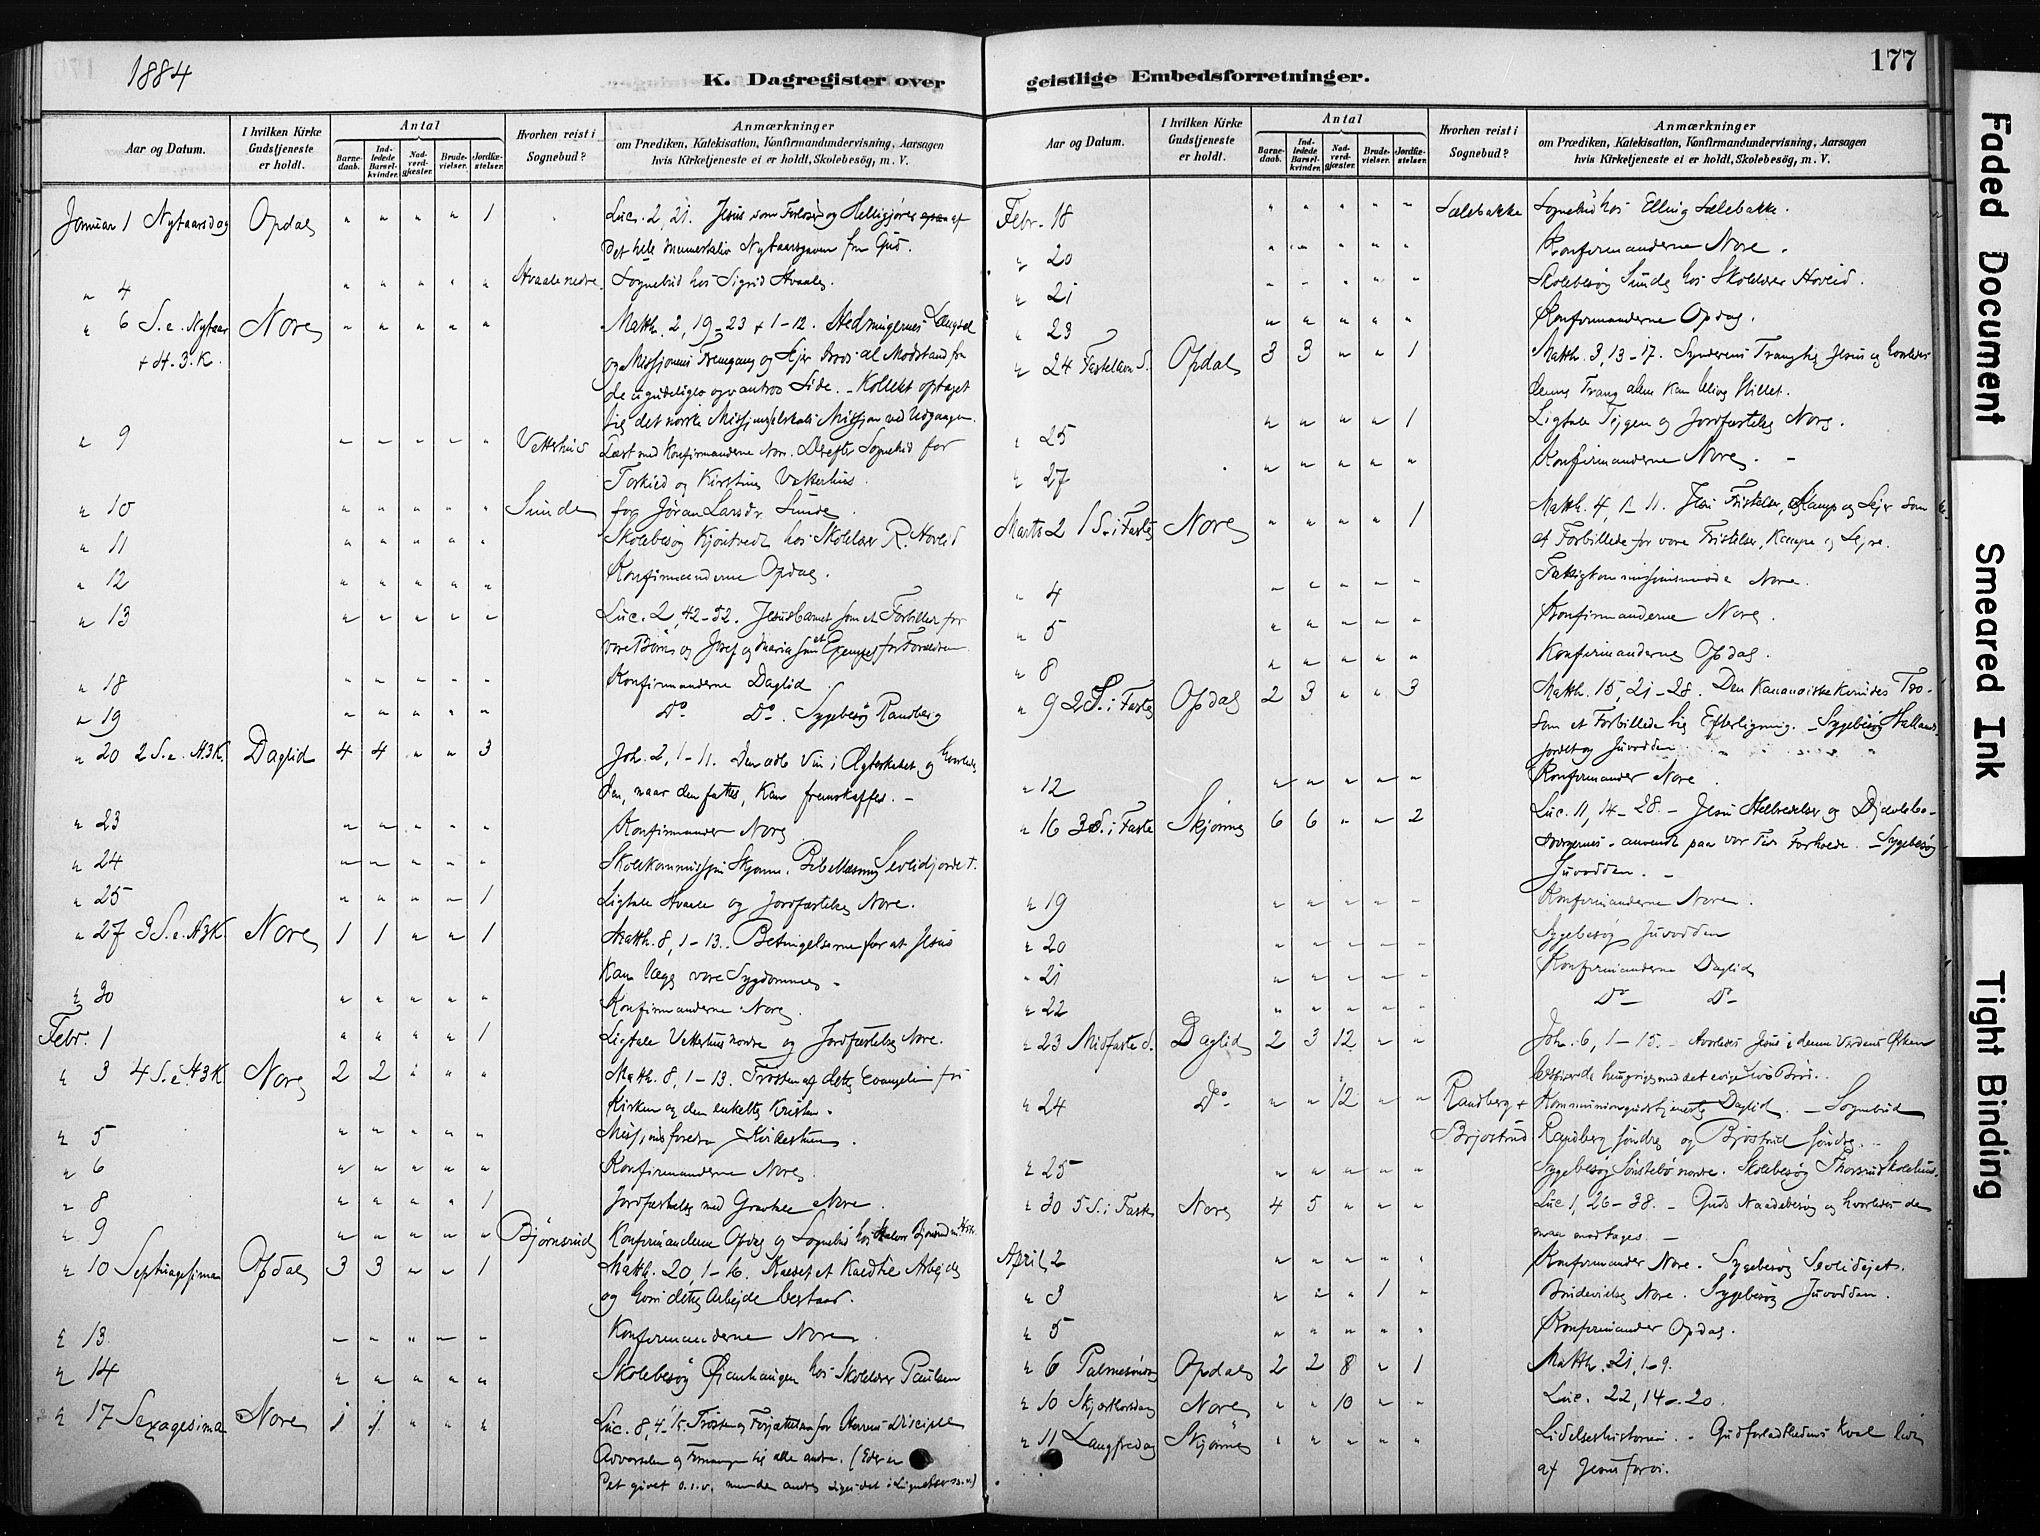 1884
K. Dagregister over
Aar og Datum.
I hvilken Kirke Gudstjeneste er holdt.
Antal
Barne-daab.
Ind-ledede Barsel-kvinder.
Nad-verd-gjæster.
Brude-vielser.
Jordfæ-stelser.
Hvorhen reist i Sognebud?
Anmærkninger
om Prædiken, Katekisation, Konfirmandundervisning, Aarsagen
hvis Kirketjeneste ei er holdt, Skolebesög, m. V.
Januar 1 Nytaarsdag Opdal " " " " 1 " Luc. 2, 21. Jesus som Forløser og Helliggjører af
Det hele Nytaarsgaven fra Gud.
" 4 " " " " " Hvaale nedre. Sognebud hos Sigrid Hvaale.
" 6 S. e. Nytaar Nore " " " " " Matth. 2, 19-23 + 1-12. Hedningernes Længsel
+ H. 3. K. og Missionens Fremgang og Sejr trods al Modstand fra
de ugudelige og vantros Side. - Kollekt optaget
til det norske Missionsselskabs Mission ved Udgangen.
" 9 " " " " " Vetterhus Læst med Konfirmanderne Nore. Derefter Sognebud for
og Kirstine Vetterhus.
" 10 " " " " " Sunde for Jøran Larsdr. Sunde.
" 11 " " " " " Skolebesøg Kjøntvedt hos Skolelærer R. Hoveid
" 12 " " " " " Konfirmanderne Opdal.
" 13 " " " " " Luc. 2, 42-52. Jesusbarnet som et Forbillede for
vore Børn og Josef og Maria som et Exempel for Forældrene.
" 18 " " " " " Konfirmanderne Daglid.
" 19 " " " " " Do Do. Sygebesøg Randberg
" 20 2 S. e. H3K. Daglid 4 4 " " 3 Joh. 2, 1-11. Den ædle Vin i Ægteskabet og hvorledes
den, naar den fattes, kan fremskaffes. -
" 23 " " " " " Konfirmander Nore
" 24 " " " " " Skolekommission Skjønne. Bibellæsning Sevleidjordet.
" 25 " " " " 1 Ligtale Hvaale og Jordfæstelse Nore.
" 27 3 S. e. H3K. Nore 1 1 " " 1 Matth. 8, 1-13. Betingelserne for at Jesus
kan læge vore Sygdomme.
" 30 " " " " " Konfirmanderne Nore.
Febr. 1 " " " " 1 Ligtale Vetterhus nordre og Jordfæstelse Nore.
" 3 4 S. e. H3K Nore 2 2 " " " Matth. 8, 1-13. Trøsten af dette Evangelium for
Kirken og den enkelte Kristen.
" 5 " " " " "
" 6 " " " " " Konfirmanderne Nore.
" 8 " " " " 1 Jordfæstelse med Gravtale Nore.
" 9 " " " " " Bjørnsrud Konfirmanderne Opdal og Sognebud hos Halvor
" 10 Septuagesima Opdal 3 3 " " 1 Matth. 20, 1-16. Kaldet til Arbejde
og hvori dette Arbejde bestaar.
" 13 " " " " " Konfirmanderne Nore.
" 14 " " " " " Skolebesøg hos Skolelærer Paulsen
" 17 Sexagesima Nore 1 1 " " " Luc. 8, 4-15. Trøsten og Forjættelsen for Herrens Disciple
Advarselen og til alle andre. (Eder er
Det givet o.s.v. men de andre siges det i Lignelser o.s.v.)
geistlige Embedsforretninger.
177
Aar og Datum.
I hvilken Kirke Gudstjeneste er holdt.
Antal
Barne-daab.
Ind-ledede Barsel-kvinder.
Nad-verd-gjæster.
Brude-vielser.
Jordfæ-stelser.
Hvorhen reist i Sognebud?
Anmærkninger
om Prædiken, Katekisation, Konfirmandundervisning, Aarsagen
hvis Kirketjeneste ei er holdt, Skolebesög, m. V.
Febr. 18 " " " " " Sælebakke Sognebud hos Elling Sælebakke.
" 20 " " " " " Konfirmanderne Nore.
" 21 " " " " " Skolebesøg Sunde hos Skolelærer Hoveid.
" 23 " " " " " Konfirmanderne Opdal.
" 24 Fastelavn S. Opdal 3 3 " " 1 Matth. 3, 13-17. Synderens Trang til Jesus og hvorledes
denne Trang alene kan blive stillet.
" 25 " " " " 1 Ligtale og Jordfæstelse Nore.
" 27 " " " " " Konfirmanderne Nore. -
Marts 2 1 S. i Faste Nore " " " " 1 Matth. 4, 1-11. Jesu Fristelser, Kampe og Sejr som
et Forbillede for vore Fristelser, Kampe og Sejre.
" 4 " " " " " Fattigkommissionsmøde Nore.
" 5 " " " " " Konfirmanderne Nore.
" 8 " " " " " Konfirmanderne Opdal.
" 9 2 S. i Faste Opdal 2 3 " " 3 Matth. 15, 21-28. Den kananæiske Kvindes Tro
som et Forbillede til Efterligning. - Sygebesøg Hallands-
jordet og Juvodden.
" 12 " " " " " Konfirmander Nore.
" 16 3 S. i Faste Skjønne 6 6 " " 2 Luc. 11, 14-28. - Jesu Helbredelser og Djævlebe-
sværgernes - anvendt paa vor Tids Forholde. - Sygebesøg
Juvodden. -
" 19 " " " " " Konfirmanderne Nore.
" 20 " " " " " Sygebesøg Juvodden
" 21 " " " " " Konfirmanderne Daglid
" 22 " " " " " Do - Do -
" 23 Midfaste S. Daglid 2 3 12 " " Joh. 6, 1-15. - Hvorledes Jesus i denne Verdens Ørken
med det evige Livs Brød.
" 24 Do " " 12 " " Randberg + Kommuniongudstjeneste Daglid. - Sognebud
Bjøstrud Randberg søndre og Bjøstrud søndre.
" 25 " " " " " Sygebesøg Sønstebø nordre. Skolebesøg Thorsrud Skolehus.
" 30 5 S. i Faste Nore 4 5 " " " Luc 1, 26-38. - Guds Naadebesøg og hvorledes de
maa modtages. -
April 2 " " " " " Konfirmander Nore. Sygebesøg
" 3 " " " 1 " Brudevielse Nore. Sygebesøg Juvodden.
" 5 " " " " " Konfirmander Opdal.
" 6 Palmesøndag Opdal 2 2 8 " 1 Matth. 21, 1-9.
" 10 Skjærthorsdag Nore " " 10 " " Luc. 22, 14-20.
" 11 Langfredag Skjønne " " " " " Lidelseshistorien. - Gudforladthedens Kval lidt
af Jesus for os.
Faded Document
Smeared Ink
Tight Binding